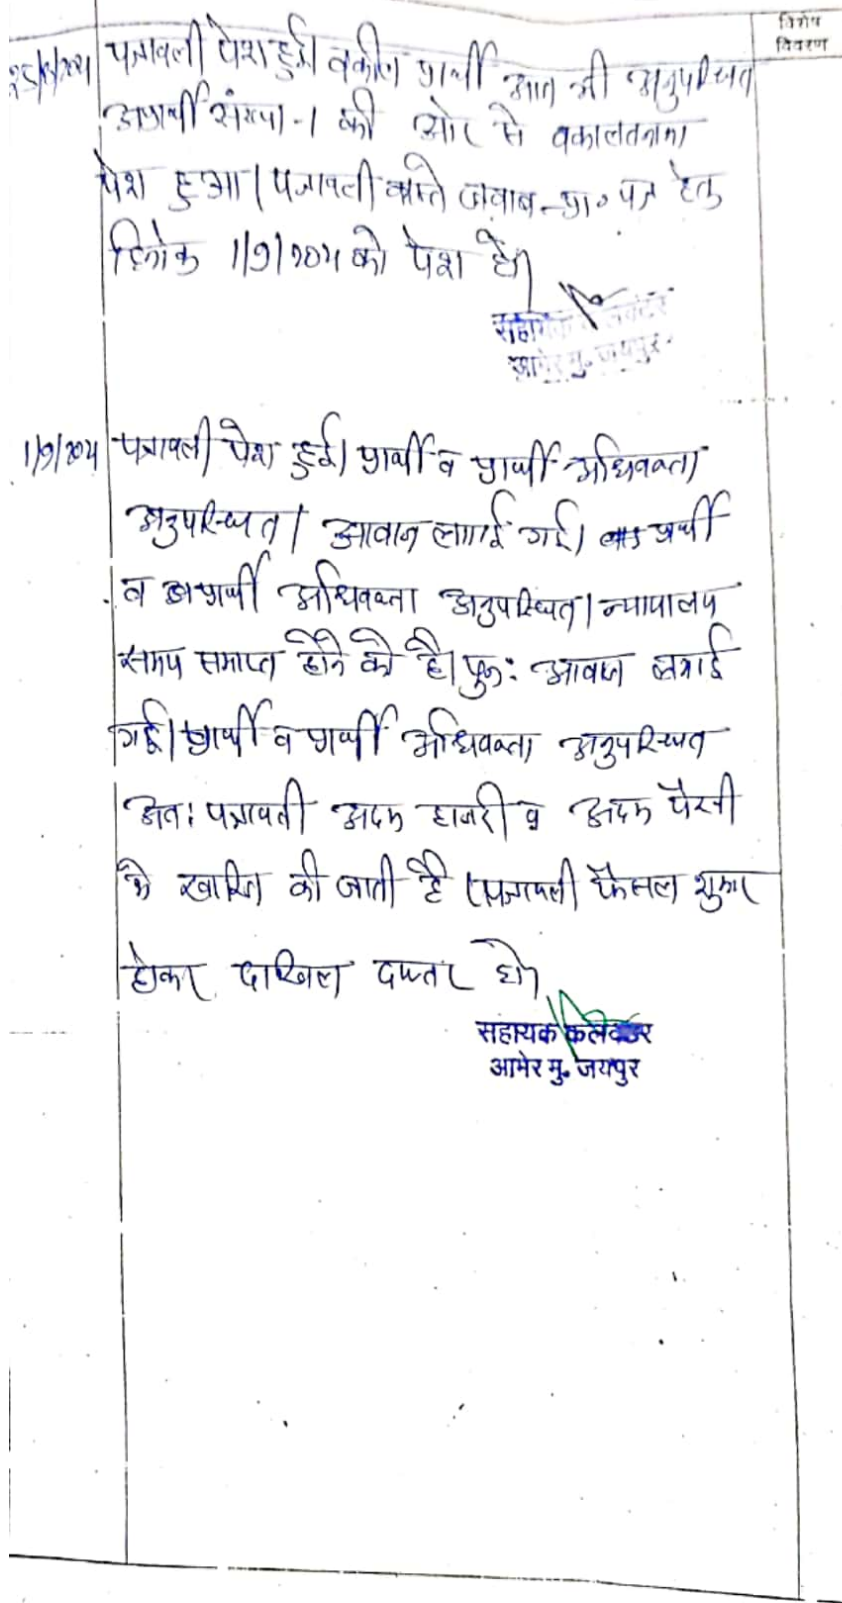 विशेष
विवरण
पत्रावली पेश हुई। वकील प्रार्थी आज भी अनुपस्थित
अप्रार्थी संख्या-1 की ओर से वकालतनामा
पेश हुआ। पत्रावली वास्ते जवाब प्रा० पत्र हेतु
दिनांक 1/9/2025 को पेश हो।
सहायक कलक्टर
आमेर मु. जयपुर
1/9/2025 पत्रावली पेश हुई। प्रार्थी व प्रार्थी अधिवक्ता
अनुपस्थित। आवाज लगाई गई। प्रार्थी
व अप्रार्थी अधिवक्ता अनुपस्थित। न्यायालय
समय समाप्त होने को है। पुन: आवाज लगाई
गई। प्रार्थी व प्रार्थी अधिवक्ता अनुपस्थित
अत: पत्रावली अदम हाजरी व अदम पैरवी
में खारिज की जाती है। पत्रावली फैसल शुमार
होकर दाखिल दफ्तर हो।
सहायक कलेक्टर
आमेर मु. जयपुर